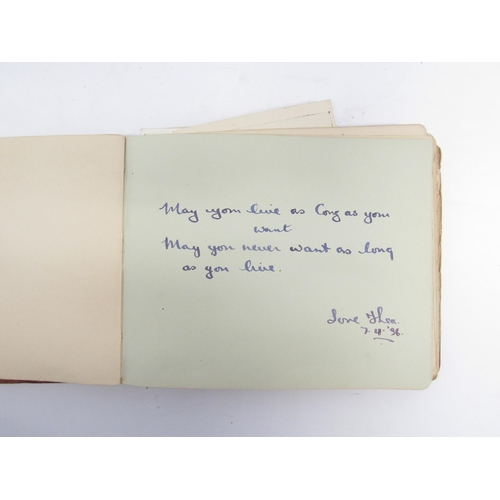 May you live as long as you
want
May you never want as long
as you live.
Love Thea.